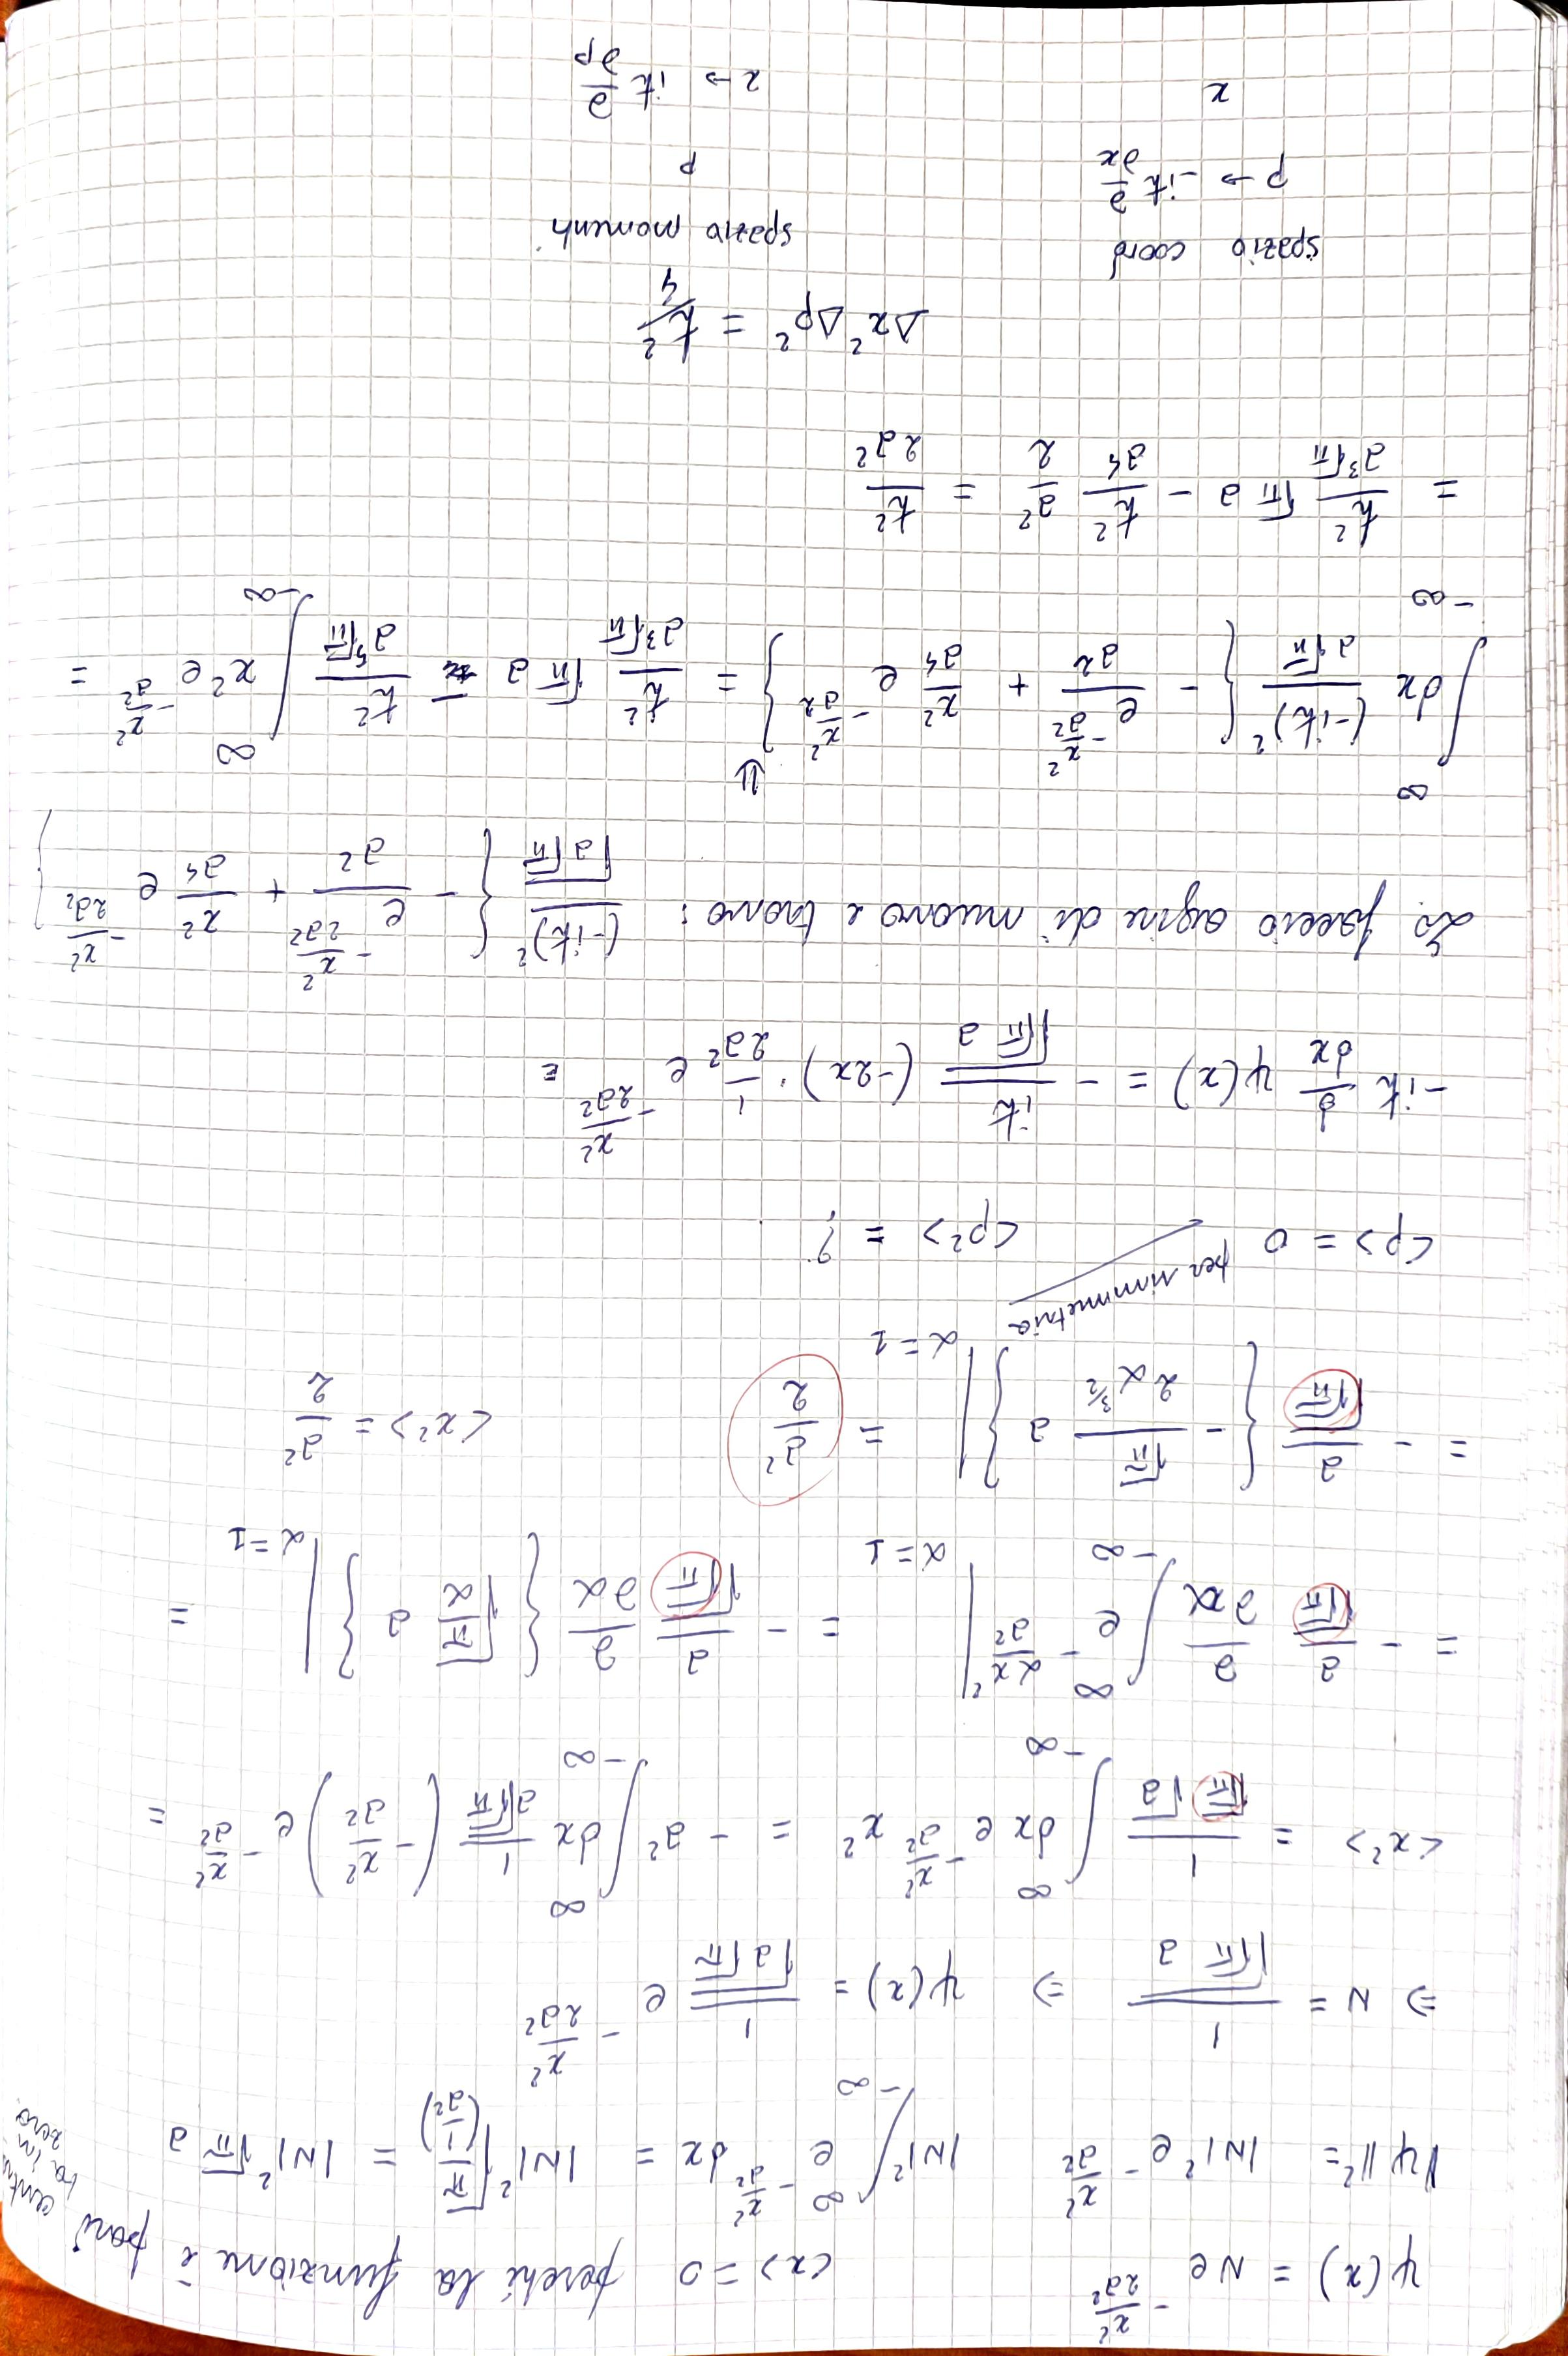 ψ(x) = N e^{-x²/2a²}    <x> = 0 perché la funzione è pari centrata in zero.
‖ψ‖² = |N|² e^{-x²/a²}    |N|² ∫_{-∞}^{∞} e^{-x²/a²} dx = |N|² √(π/(1/a²)) = |N|² √π a
⇒ N = 1/√(√π a) ⇒ ψ(x) = 1/√(a√π) e^{-x²/2a²}
<x²> = 1/(√√π √a) ∫_{-∞}^{∞} dx e^{-x²/a²} x² = - a² ∫_{-∞}^{∞} dx 1/(a√√π) (-x²/a²) e^{-x²/a²} =
= - a/√√π ∂/∂α ∫_{-∞}^{∞} e^{-αx²/a²} |_{α=1} = - a/√√π ∂/∂α { √(π/α) a } |_{α=1} =
= - a/√√π { - √π/(2α^{3/2}) a } |_{α=1} = a²/2    <x²> = a²/2
<p> = 0 per simmetria    <p²> = ?
-iħ d/dx ψ(x) = - iħ/√(√π a) (-2x) · 1/2a² e^{-x²/2a²} =
Lo faccio agire di nuovo e trovo: (-iħ)²/√(a√π) { - e^{-x²/2a²}/a² + x²/a⁴ e^{-x²/2a²} }
∫_{-∞}^{∞} dx (-iħ)²/(a√π) { - e^{-x²/a²}/a² + x²/a⁴ e^{-x²/a²} } ⇓ = ħ²/(a³√π) √π a - ħ²/(a⁵√π) ∫_{-∞}^{∞} x² e^{-x²/a²} =
= ħ²/(a³√π) √π a - ħ²/a⁴ a²/2 = ħ²/2a²
Δx² Δp² = ħ²/4
spazio coord    spazio momenti
p → -iħ ∂/∂x    p
x    x → iħ ∂/∂p